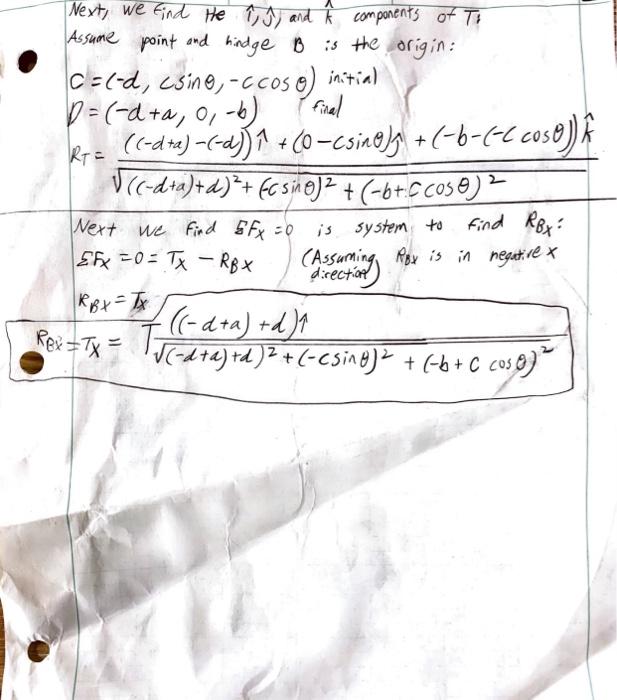 Next, we find the î, ĵ, and k̂ components of T:
Assume point and hindge B is the origin:
C = (-d, c sin θ, -c cos θ) initial
D = (-d+a, 0, -b) final
R_T = ((-d+a)-(-d))î + (0-c sin θ)ĵ + (-b-(-c cos θ))k̂
√((-d+a)+d)² + (-c sin θ)² + (-b+c cos θ)²
Next we find ΣFx = 0 is system to find RBx:
ΣFx = 0 = Tx - RBx (Assuming RBx is in negative x direction)
RBx = Tx
RBx = Tx = T ((-d+a)+d)î
√((-d+a)+d)² + (-c sin θ)² + (-b + c cos θ)²